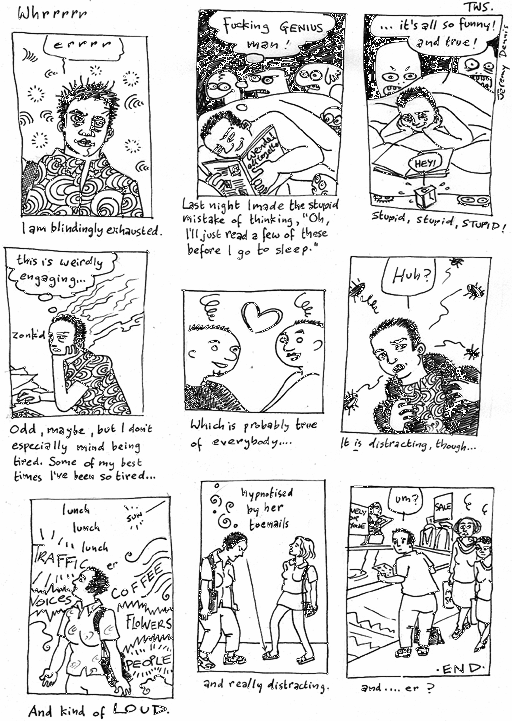 Whrrrrr
TWS.
Jeremy Dennis
errrr
I am blindingly exhausted.
Fucking GENIUS
man!
Wendel
all together
Last night I made the stupid
mistake of thinking, "Oh,
I'll just read a few of these
before I go to sleep."
... it's all so funny!
and true!
HEY!
Stupid, stupid, STUPID!
this is weirdly
engaging...
zonk'd
Odd, maybe, but I don't
especially mind being
tired. Some of my best
times I've been so tired...
Which is probably true
of everybody....
Huh?
It is distracting, though...
lunch
lunch
lunch
SUN
TRAFFIC
er
VOICES
COFFEE
FLOWERS
PEOPLE
And kind of LOUD...
hypnotised
by her
toenails
and really distracting.
um?
SALE
·END·
and.... er ?